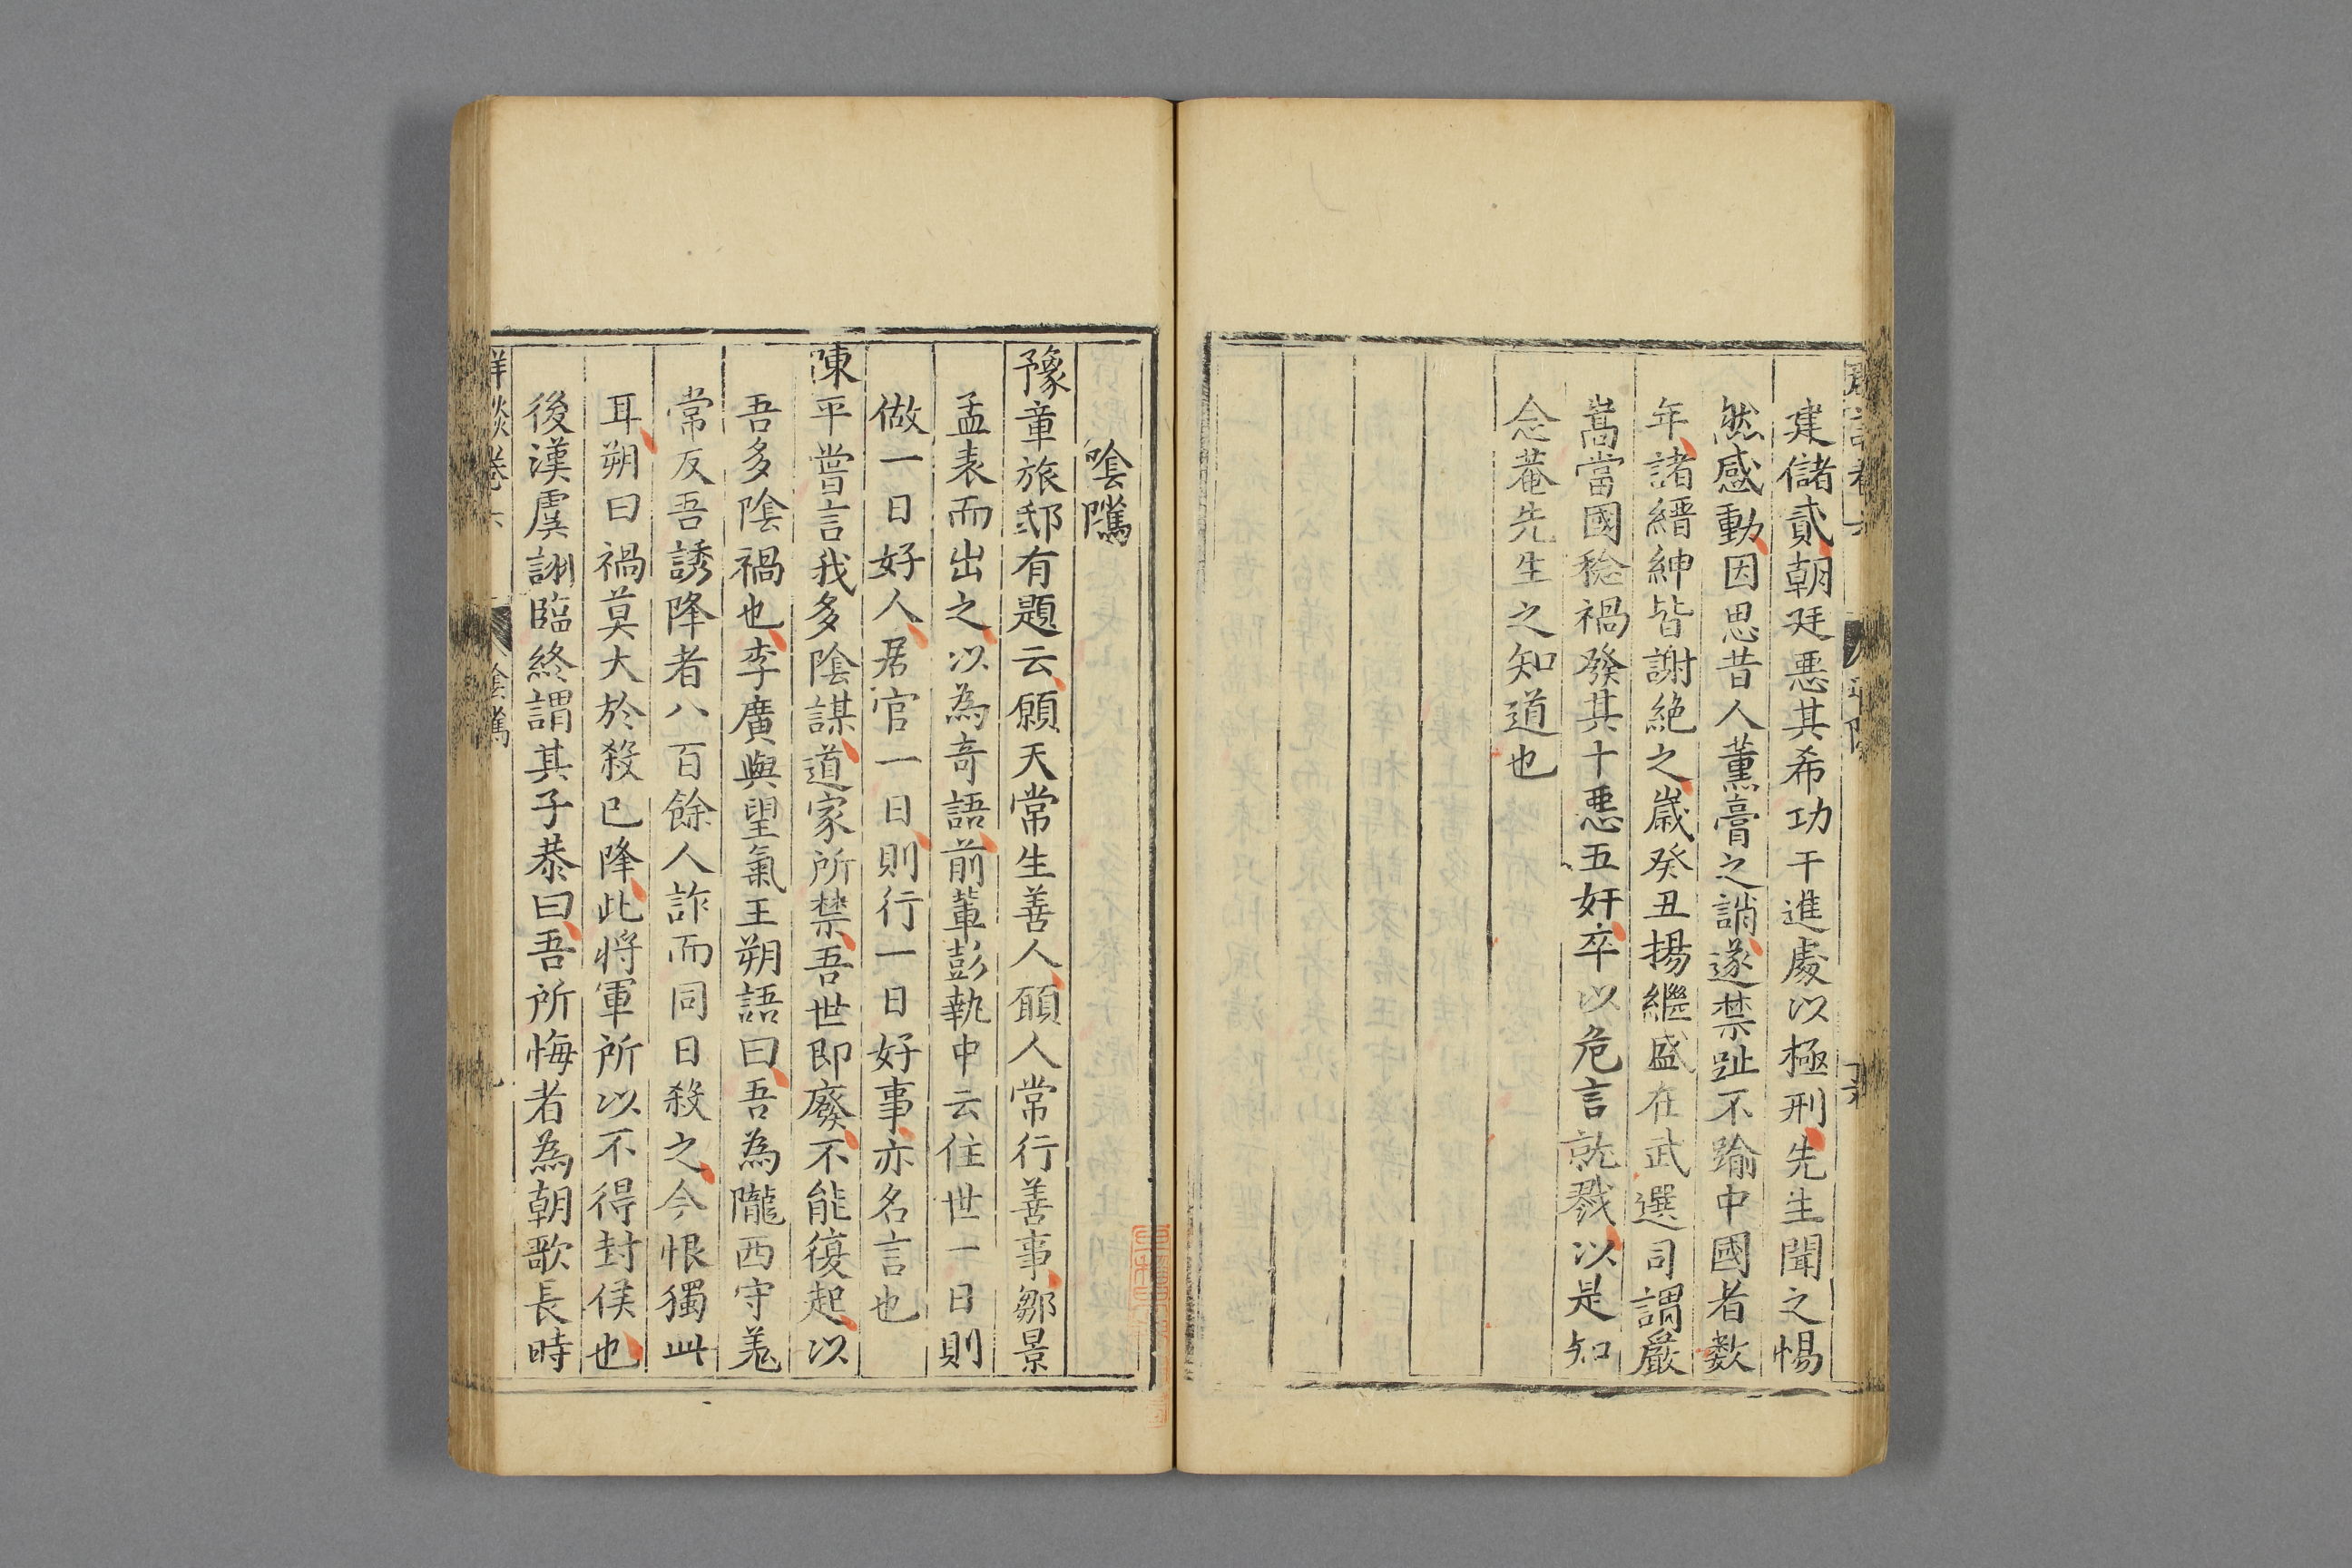 建儲貳朝廷惡其希功干進處以極刑先生聞之惕
然感動因思昔人薰膏之誚遂禁趾不踰中國者數
年諸縉紳皆謝絶之歲癸丑揚繼盛在武選司謂嚴
嵩當國稔禍發其十惡五奸卒以危言就戮以是知
念菴先生之知道也
陰隲
豫章旅邸有題云願天常生善人願人常行善事鄒景
孟表而出之以為奇語前輩彭執中云住世一日則
做一日好人居官一日則行一日好事亦名言也
陳平嘗言我多陰謀道家所禁吾世即廢不能復起以
吾多陰禍也李廣與望氣王朔語曰吾為隴西守羌
常反吾誘降者八百餘人詐而同日殺之今恨獨此
耳朔曰禍莫大於殺已降此將軍所以不得封侯也
後漢虞詡臨終謂其子恭曰吾所悔者為朝歌長時
卷六 陰隲